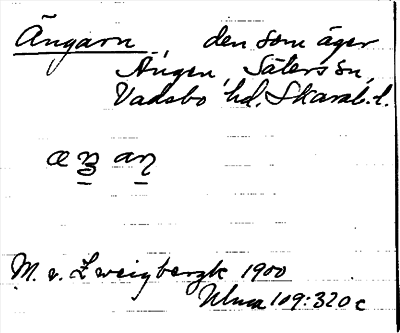 Ängarn, den som äger
Ängen, Säters sn,
Vadsbo hd. Skarab. l.
M. v. Zweigbergk 1900
Ulma 109:320 c